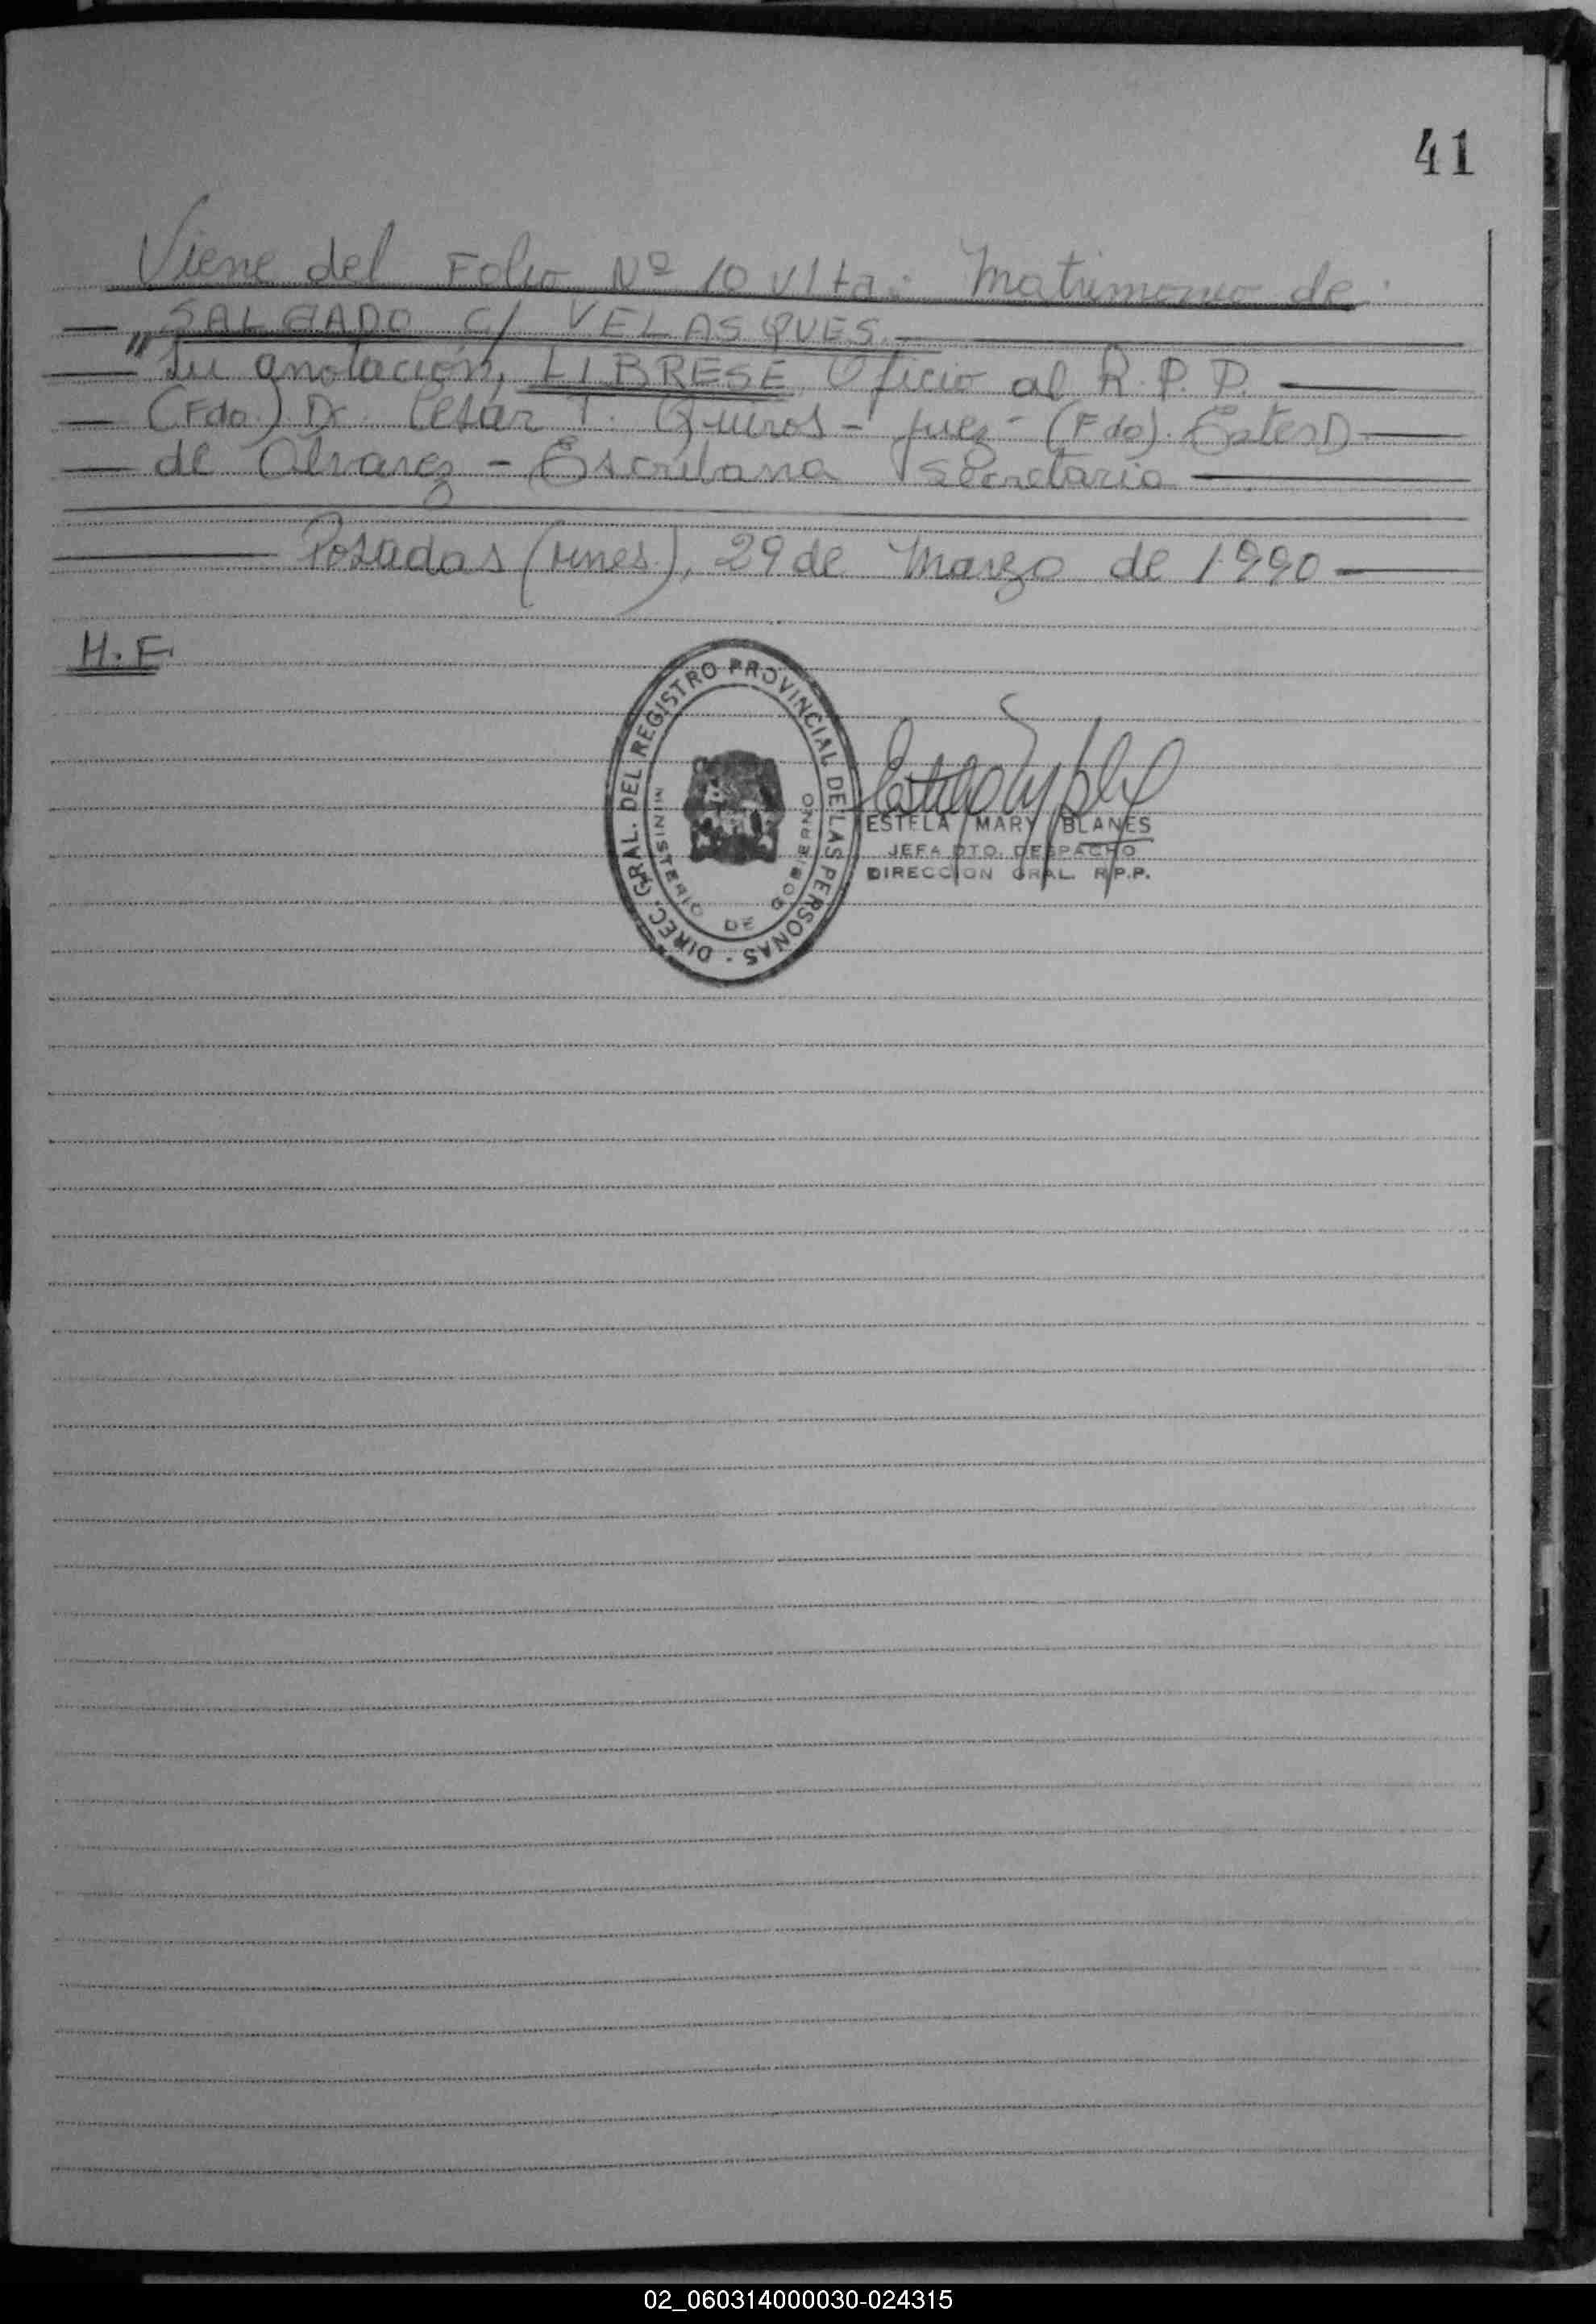 41
Viene del Folio Nº 10 vlta: Matrimonio de
— SALGADO C/ VELASQUES.—
— "su anotación, LIBRESE Oficio al R.P.P. —
— (Fdo.) Dr. Cesar T. Quiros - Juez - (Fdo). Ester D. —
— de Alvarez - Escribana Secretaria —
— Posadas (Mnes.), 29 de Marzo de 1990 —
H.F.
DIREC. GRAL. DEL REGISTRO PROVINCIAL DE LAS PERSONAS -
MINISTERIO DE GOBIERNO
ESTELA MARY BLANES
JEFA DTO. DESPACHO
DIRECCION GRAL. R.P.P.
02_060314000030-024315